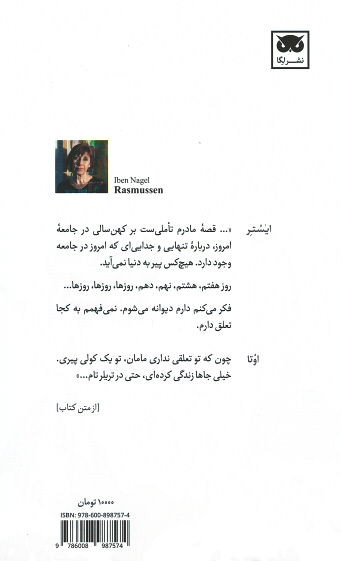 نشر ایگا
Iben Nagel
Rasmussen
ایستر «... قصهٔ مادرم تأملی‌ست بر کهن‌سالی در جامعهٔ
امروز، دربارهٔ تنهایی و جدایی‌ای که امروز در جامعه
وجود دارد. هیچ‌کس پیر به دنیا نمی‌آید.
روز هفتم، هشتم، نهم، دهم، روزها، روزها، روزها...
فکر می‌کنم دارم دیوانه می‌شوم. نمی‌فهمم به کجا
تعلق دارم.
اوتا چون که تو تعلقی نداری مامان، تو یک کولی پیری.
خیلی جاها زندگی کرده‌ای، حتی در تریلر تام...»
[از متن کتاب]
۱۰۰۰۰ تومان
ISBN: 978-600-898757-4
9 786008 987574